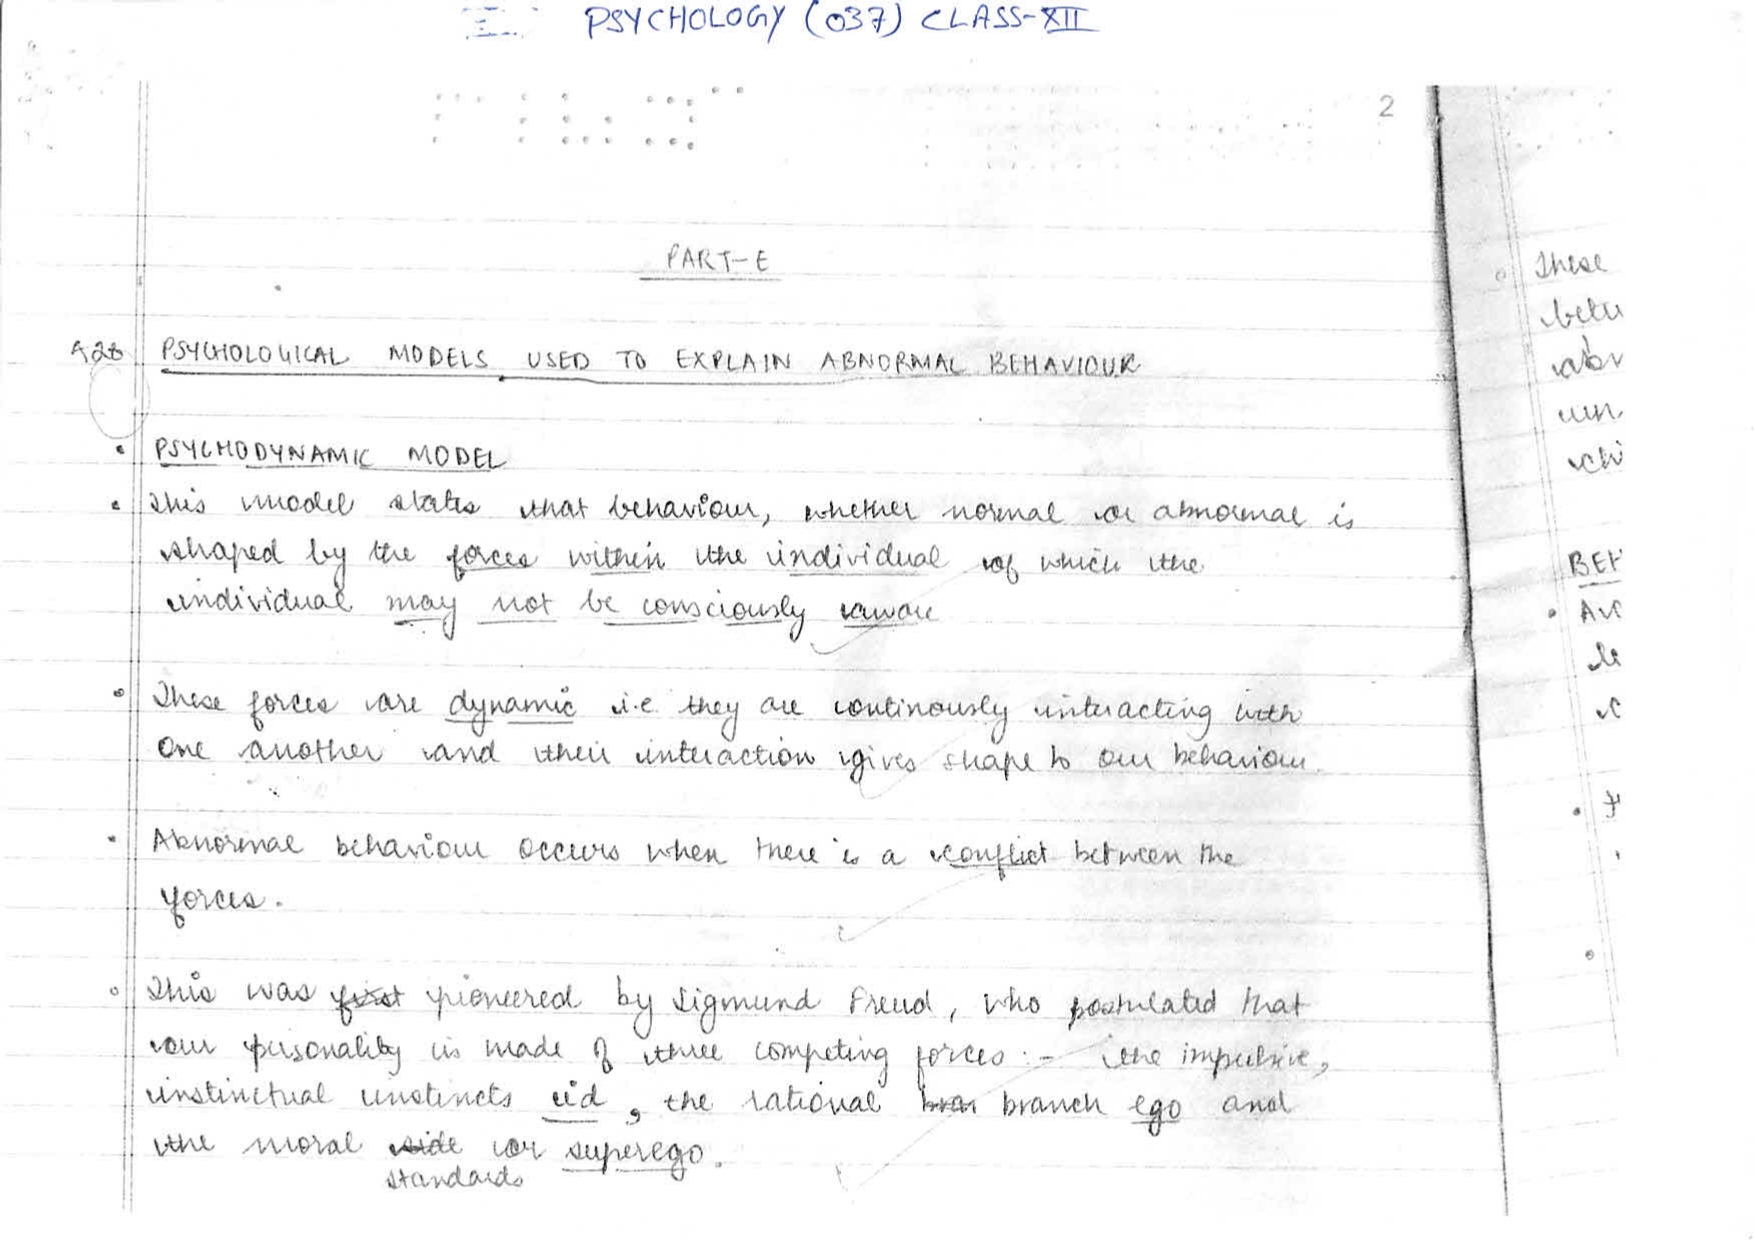 PSYCHOLOGY (037) CLASS-XII
2
PART-E
A28 PSYCHOLOGICAL MODELS USED TO EXPLAIN ABNORMAL BEHAVIOUR
• PSYCHODYNAMIC MODEL
• This model states that behaviour, whether normal or abnormal is
shaped by the forces within the individual of which the
individual may not be consciously aware
• These forces are dynamic i.e they are continously interacting with
one another and their interaction gives shape to our behaviour.
• Abnormal behaviour occurs when there is a conflict between the
forces.
• This was first pioneered by Sigmund Freud, who postulated that
our personality is made of three competing forces:- the impulsive,
instinctual instincts id, the rational bran branch ego and
the moral side or superego.
standards
• These
betw
abr
un
chi
BEH
•
•
•